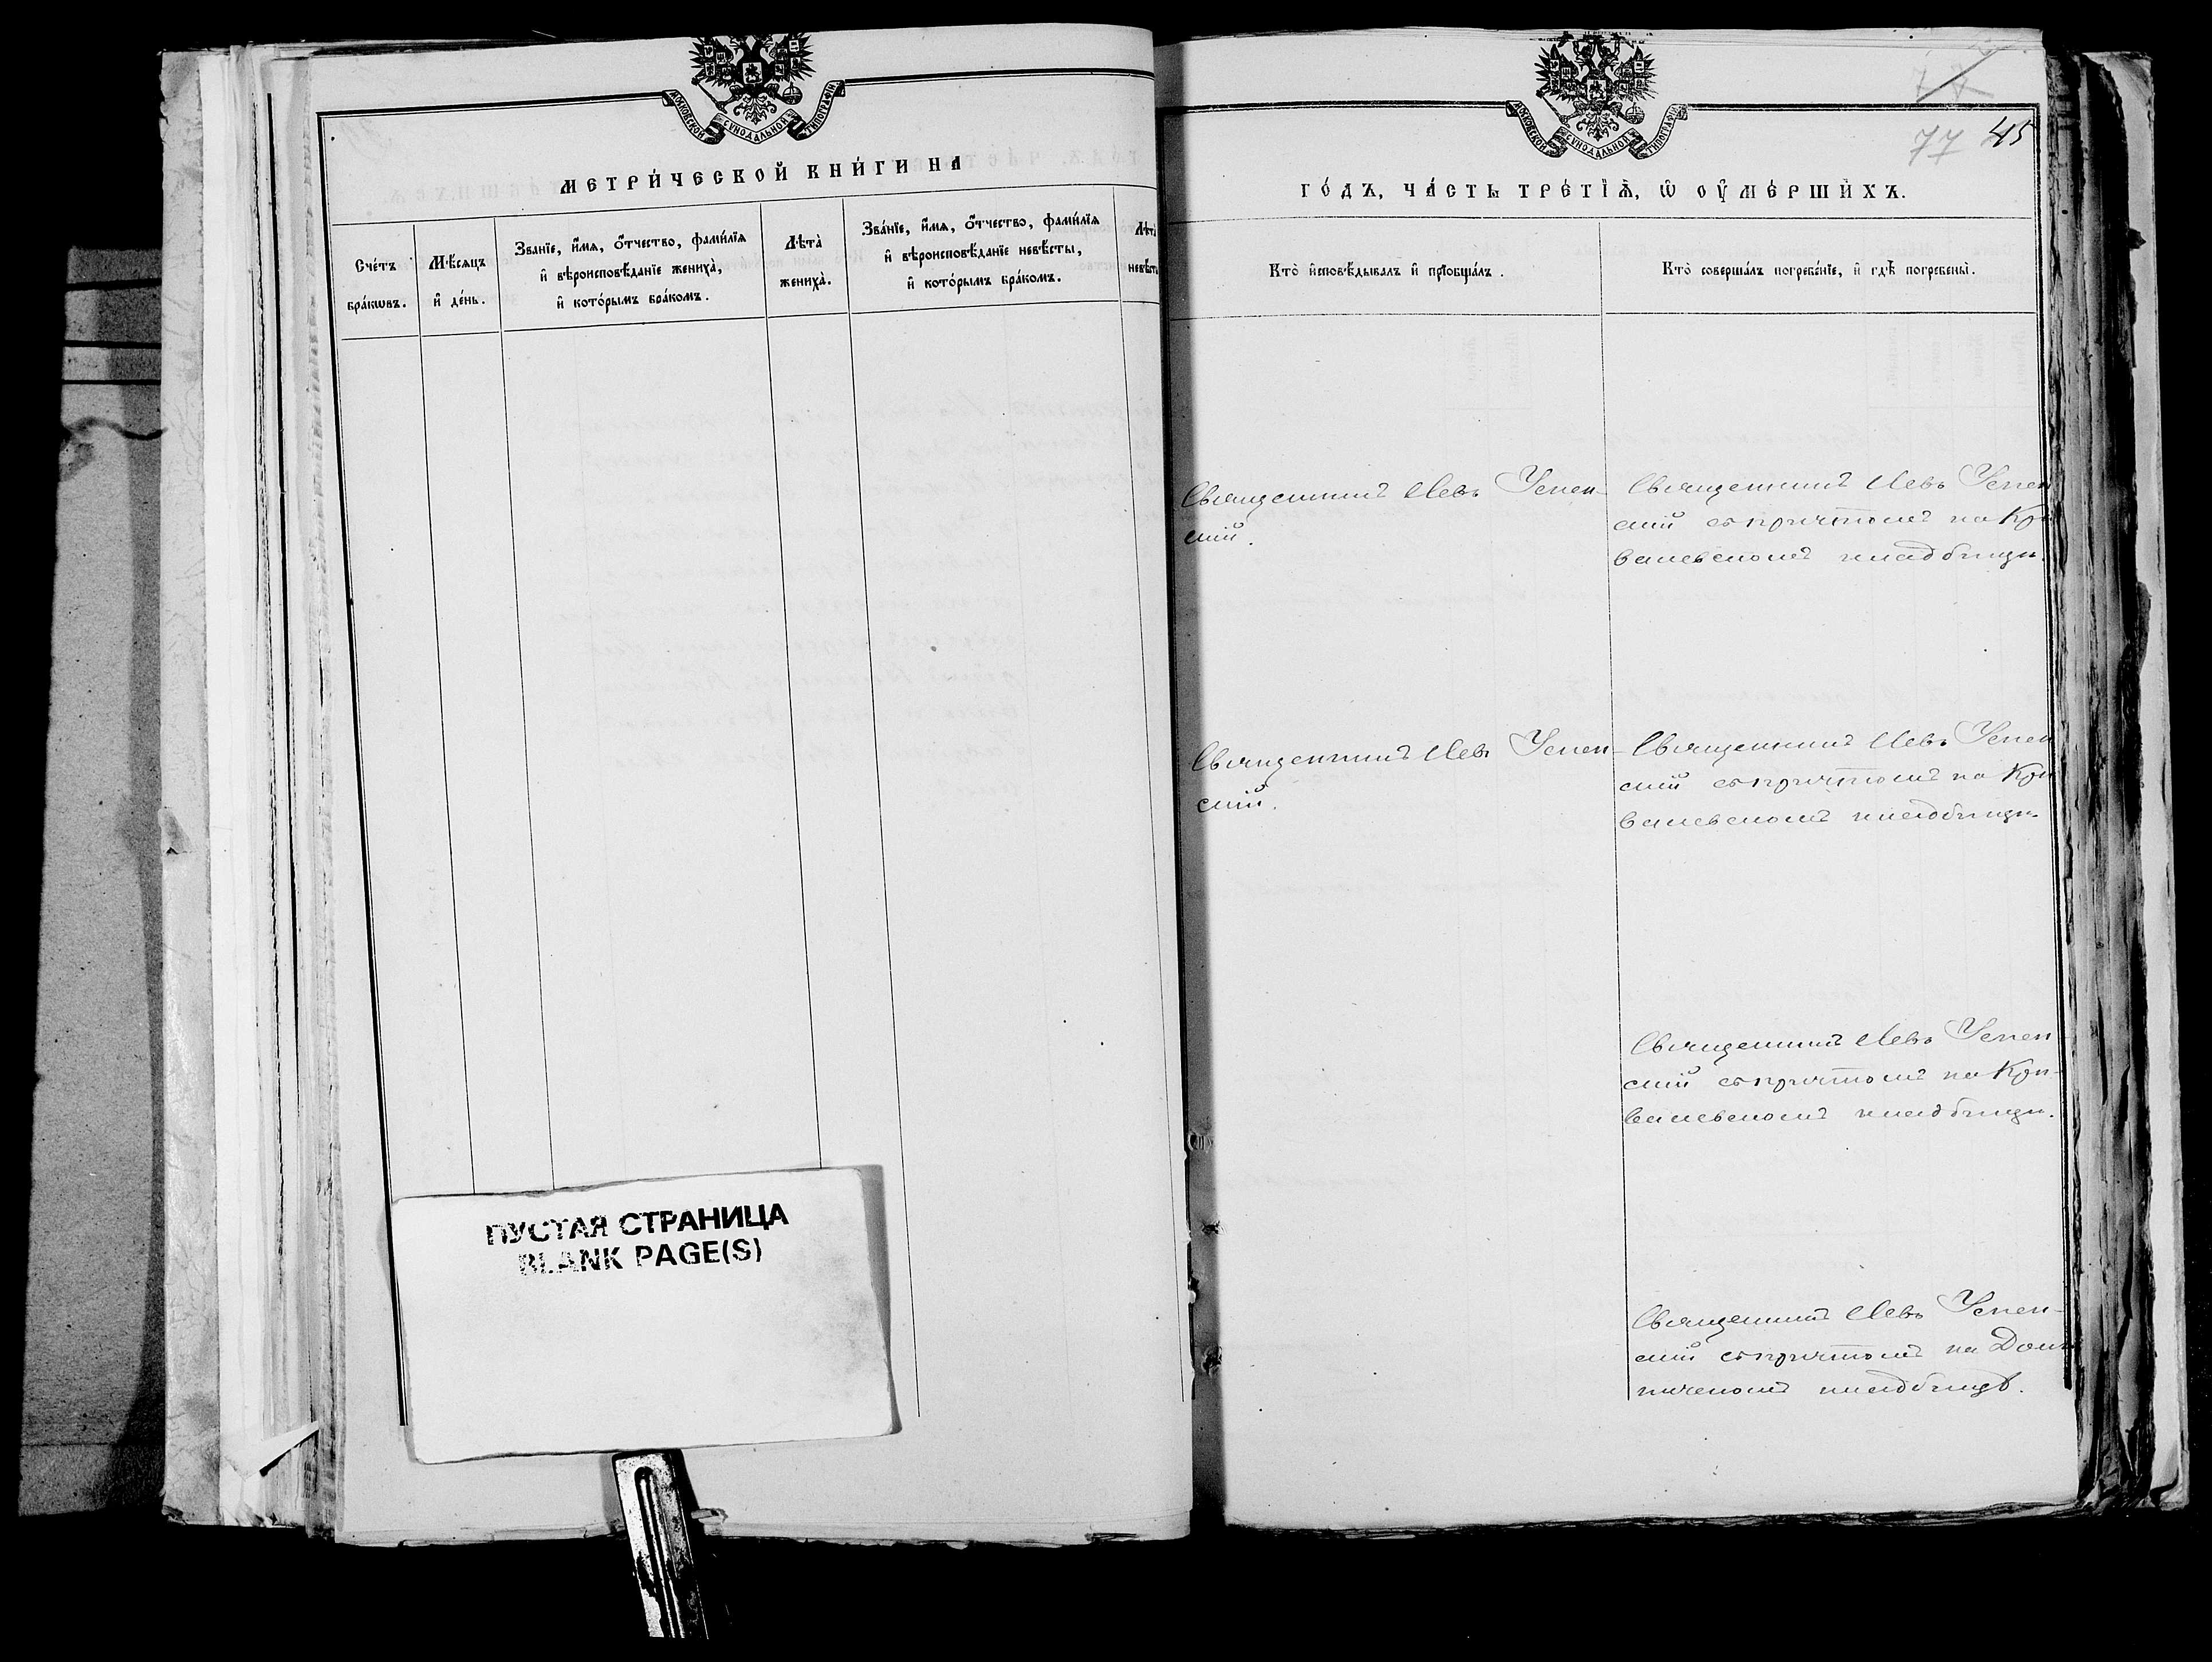 МОСКОВСКОЙ СѴНОДАЛЬНОЙ ТИПОГРАФІИ
МЕТРИ́ЧЕСКОЙ КНИ́ГИ НА
Сче́тъ бра́кѡвъ.
Мѣ́сяцъ и҆ де́нь.
Зва́нїе, и҆́мѧ, о҆́тчество, фами́лїѧ
и҆ вѣроисповѣ́данїе жениха̀,
и҆ кото́рымъ бра́комъ.
Лѣта̀
жениха̀.
Зва́нїе, и҆́мѧ, о҆́тчество, фами́лїѧ
и҆ вѣроисповѣ́данїе невѣ́сты,
и҆ кото́рымъ бра́комъ.
Лѣта̀
невѣ́сты
ПУСТАЯ СТРАНИЦА
BLANK PAGE(S)
МОСКОВСКОЙ СѴНОДАЛЬНОЙ ТИПОГРАФІИ
77 45
ГО́ДЪ, ЧА́СТЬ ТРЕ́ТЇѦ, Ѡ ОУ҆МЕ́РШИХЪ.
Кто̀ и҆сповѣ́дывалъ и҆ прїобща́лъ.
Кто̀ соверша́лъ погребе́нїе, и҆ гдѣ̀ погребены̀.
Священникъ Левъ Успен-
скій.
Священникъ Левъ Успен
скій съ причтомъ на Кри
валевскомъ кладбищи.
Священникъ Левъ Успен-
скій.
Священникъ Левъ Успен
скій съ причтомъ на Кри
валевскомъ кладбищи.
Священникъ Левъ Успен
скій съ причтомъ на Кри-
валевскомъ кладбищи.
Священникъ Левъ Успен-
скій съ причтомъ на
кладбищѣ.